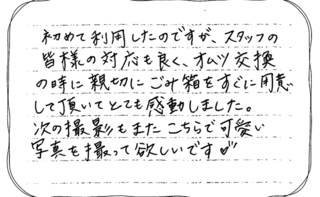 初めて利用したのですが、スタッフの
皆様の対応も良く、オムツ交換
の時に親切にごみ箱をすぐに用意
して頂いてとても感動しました。
次の撮影もまたこちらで可愛い
写真を撮って欲しいです♡